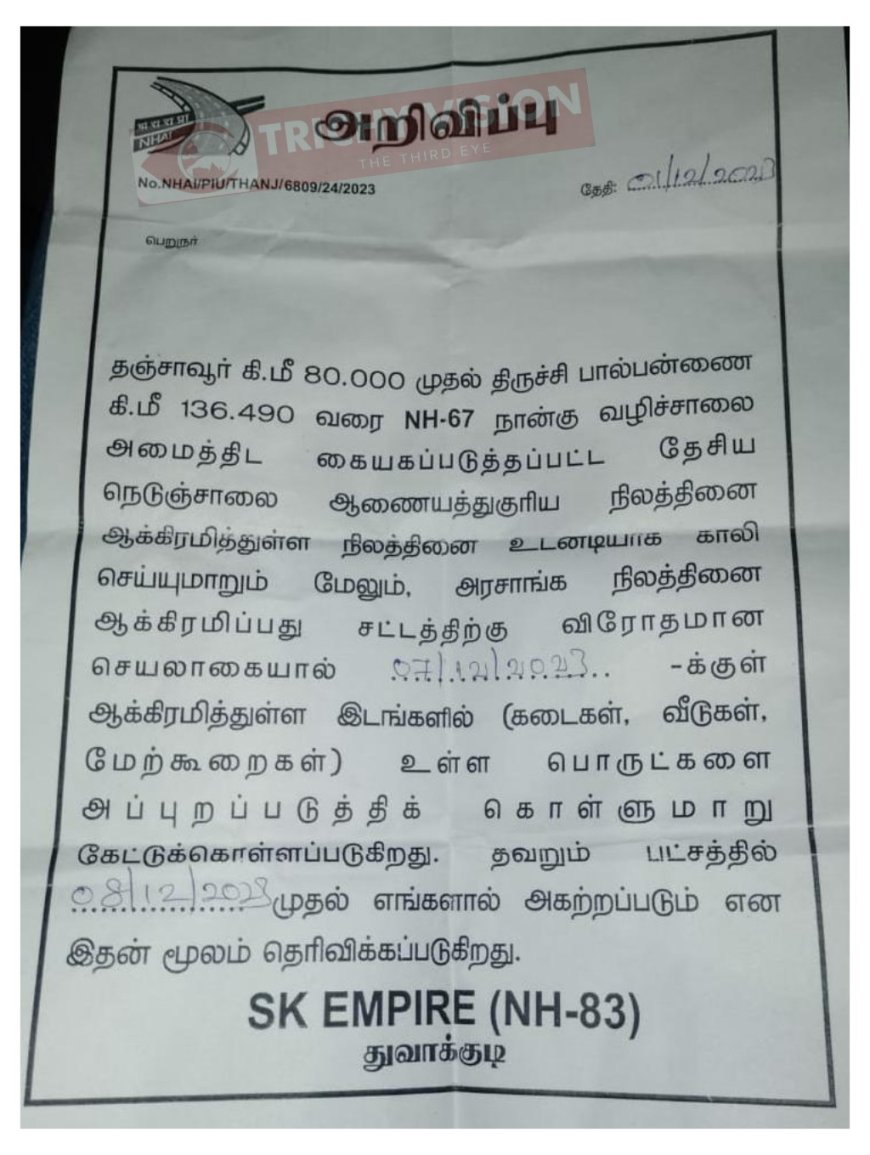 भा रा रा प्रा
NHAI
அறிவிப்பு
TRICHY VISION
THE THIRD EYE
No.NHAI/PIU/THANJ/6809/24/2023
தேதி: 01/12/2023
பெறுநர்
தஞ்சாவூர் கி.மீ 80.000 முதல் திருச்சி பால்பன்ணை
கி.மீ 136.490 வரை NH-67 நான்கு வழிச்சாலை
அமைத்திட கையகப்படுத்தப்பட்ட தேசிய
நெடுஞ்சாலை ஆணையத்துகுரிய நிலத்தினை
ஆக்கிரமித்துள்ள நிலத்தினை உடனடியாக காலி
செய்யுமாறும் மேலும், அரசாங்க நிலத்தினை
ஆக்கிரமிப்பது சட்டத்திற்கு விரோதமான
செயலாகையால் 07/12/2023 -க்குள்
ஆக்கிரமித்துள்ள இடங்களில் (கடைகள், வீடுகள்,
மேற்கூறைகள்) உள்ள பொருட்களை
அப்புறப்படுத்திக் கொள்ளுமாறு
கேட்டுக்கொள்ளப்படுகிறது. தவறும் பட்சத்தில்
08/12/2023 முதல் எங்களால் அகற்றப்படும் என
இதன் மூலம் தெரிவிக்கப்படுகிறது.
SK EMPIRE (NH-83)
துவாக்குடி